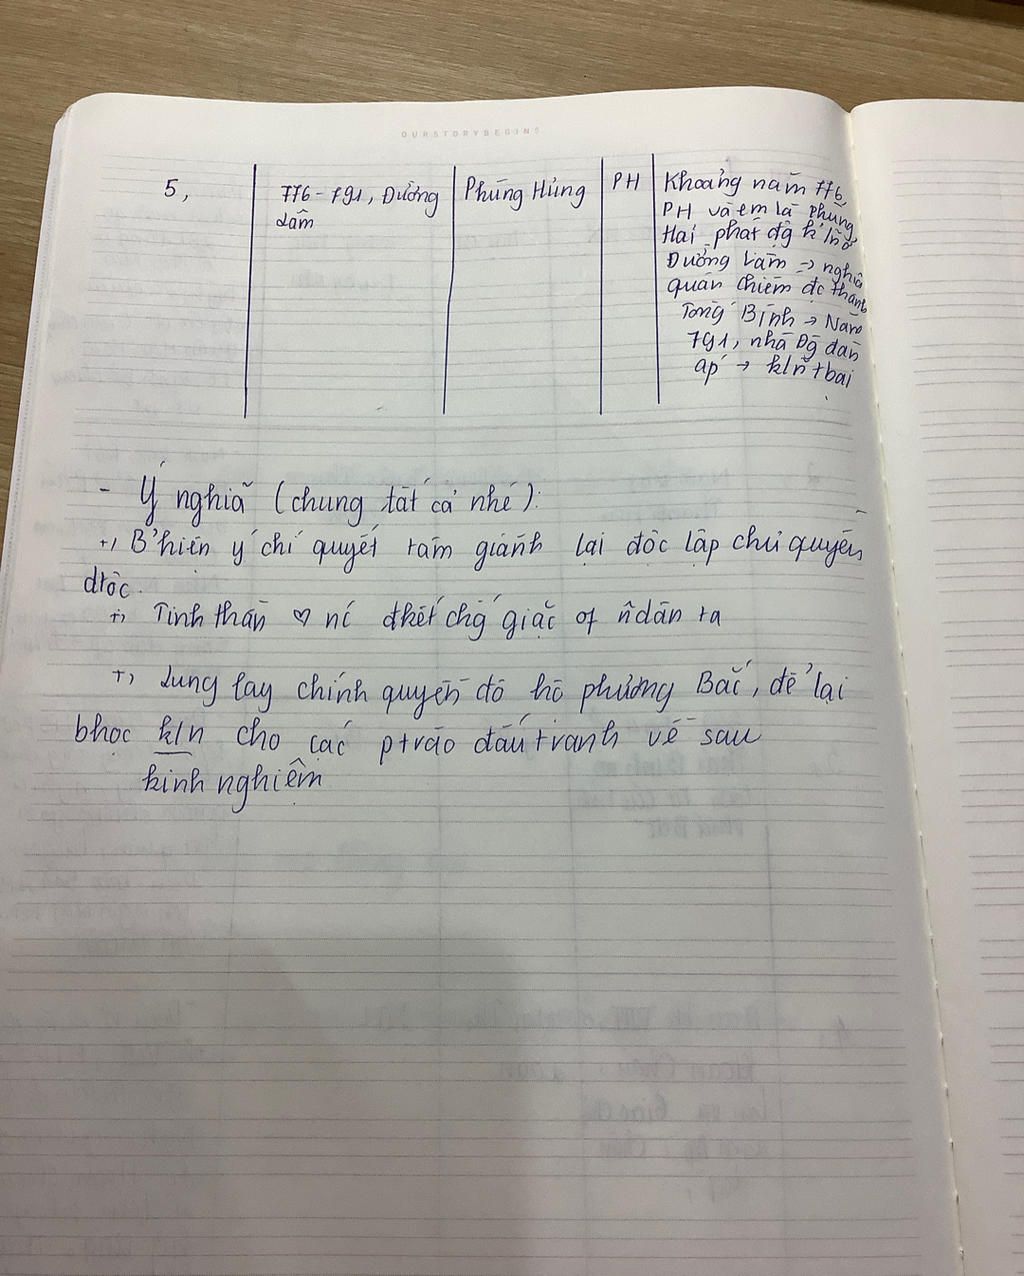 OURSTORYBEGINS
5,
776 - 791, Đường
Lâm
Phùng Hưng
PH
Khoảng năm 776,
PH và em là Phùng
Hai phát đg k/ng
Đường Lâm → nghĩa
quân chiếm đc thành
Tống Bình → Năm
791, nhà Đg đàn
áp → k/n t bại
- Ý nghĩa (chung tất cả nhé):
+, B'hiện ý chí quyết tâm giành lại độc lập chủ quyền
dtộc.
+, Tinh thần ♡ nc đkết chg giặc of ndân ta
+, Lung lay chính quyền đô hộ phương Bắc, để lại
bhọc k/n cho các ptrào đấu tranh về sau
kinh nghiệm